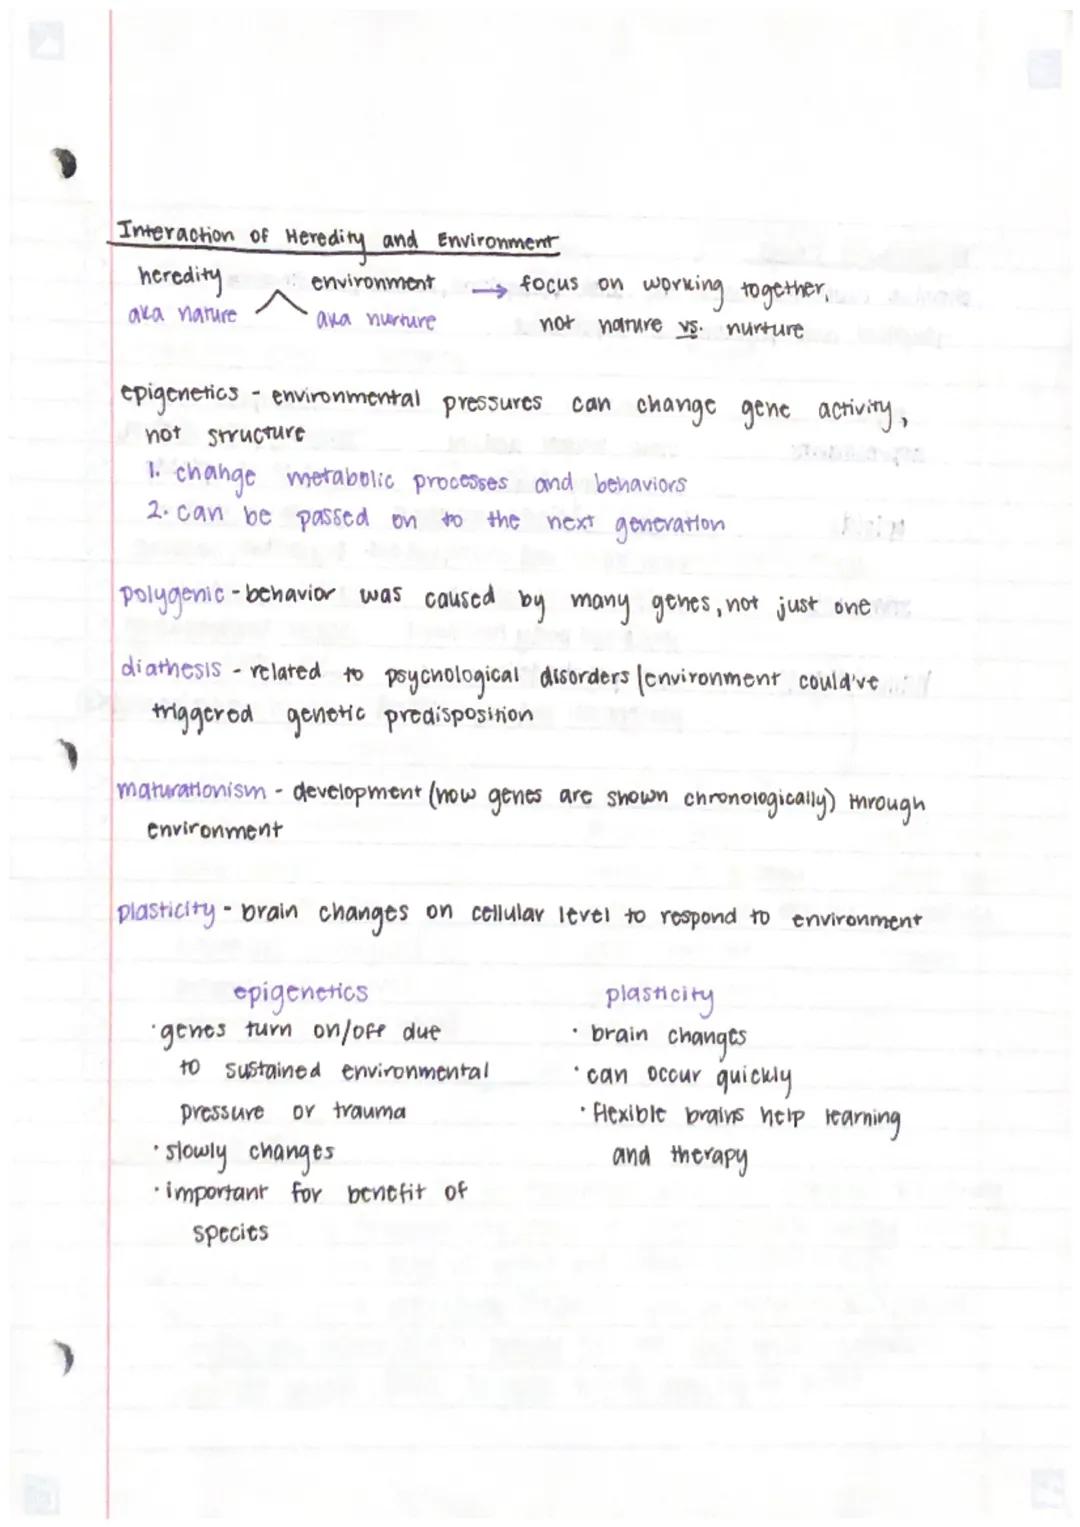 Interaction of Heredity and Environment
heredity environment → focus on working together,
aka nature aka nurture not nature vs. nurture
epigenetics - environmental pressures can change gene activity,
not structure
1. change metabolic processes and behaviors
2. can be passed on to the next generation
polygenic - behavior was caused by many genes, not just one
diathesis - related to psychological disorders/environment could've
triggered genetic predisposition
maturationism - development (how genes are shown chronologically) through
environment
plasticity - brain changes on cellular level to respond to environment
epigenetics
· genes turn on/off due
to sustained environmental
pressure or trauma
· slowly changes
· important for benefit of
species
plasticity
· brain changes
· can occur quickly
· flexible brains help learning
and therapy